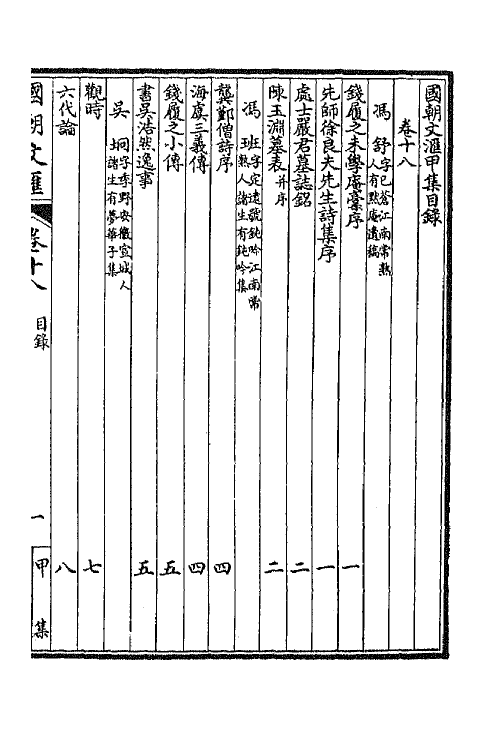 國朝文滙甲集目錄
卷十八
馮 舒 字已蒼江南常熟
人有點庵遺稿
錢履之未學庵稾序 一
先師徐良夫先生詩集序 一
處士嚴君墓誌銘 二
陳玉淵墓表并序 二
馮 班 字定遠號鈍吟江南常
熟人諸生有鈍吟集
龔鄞僧詩序 四
海虞三義傳 四
錢履之小傳 五
書吳浩然逸事 五
吳 坰 字季野安徽宣城人
諸生有夢華子集
觀時 七
六代論 八
國朝文滙 卷十八 目錄 一 甲集